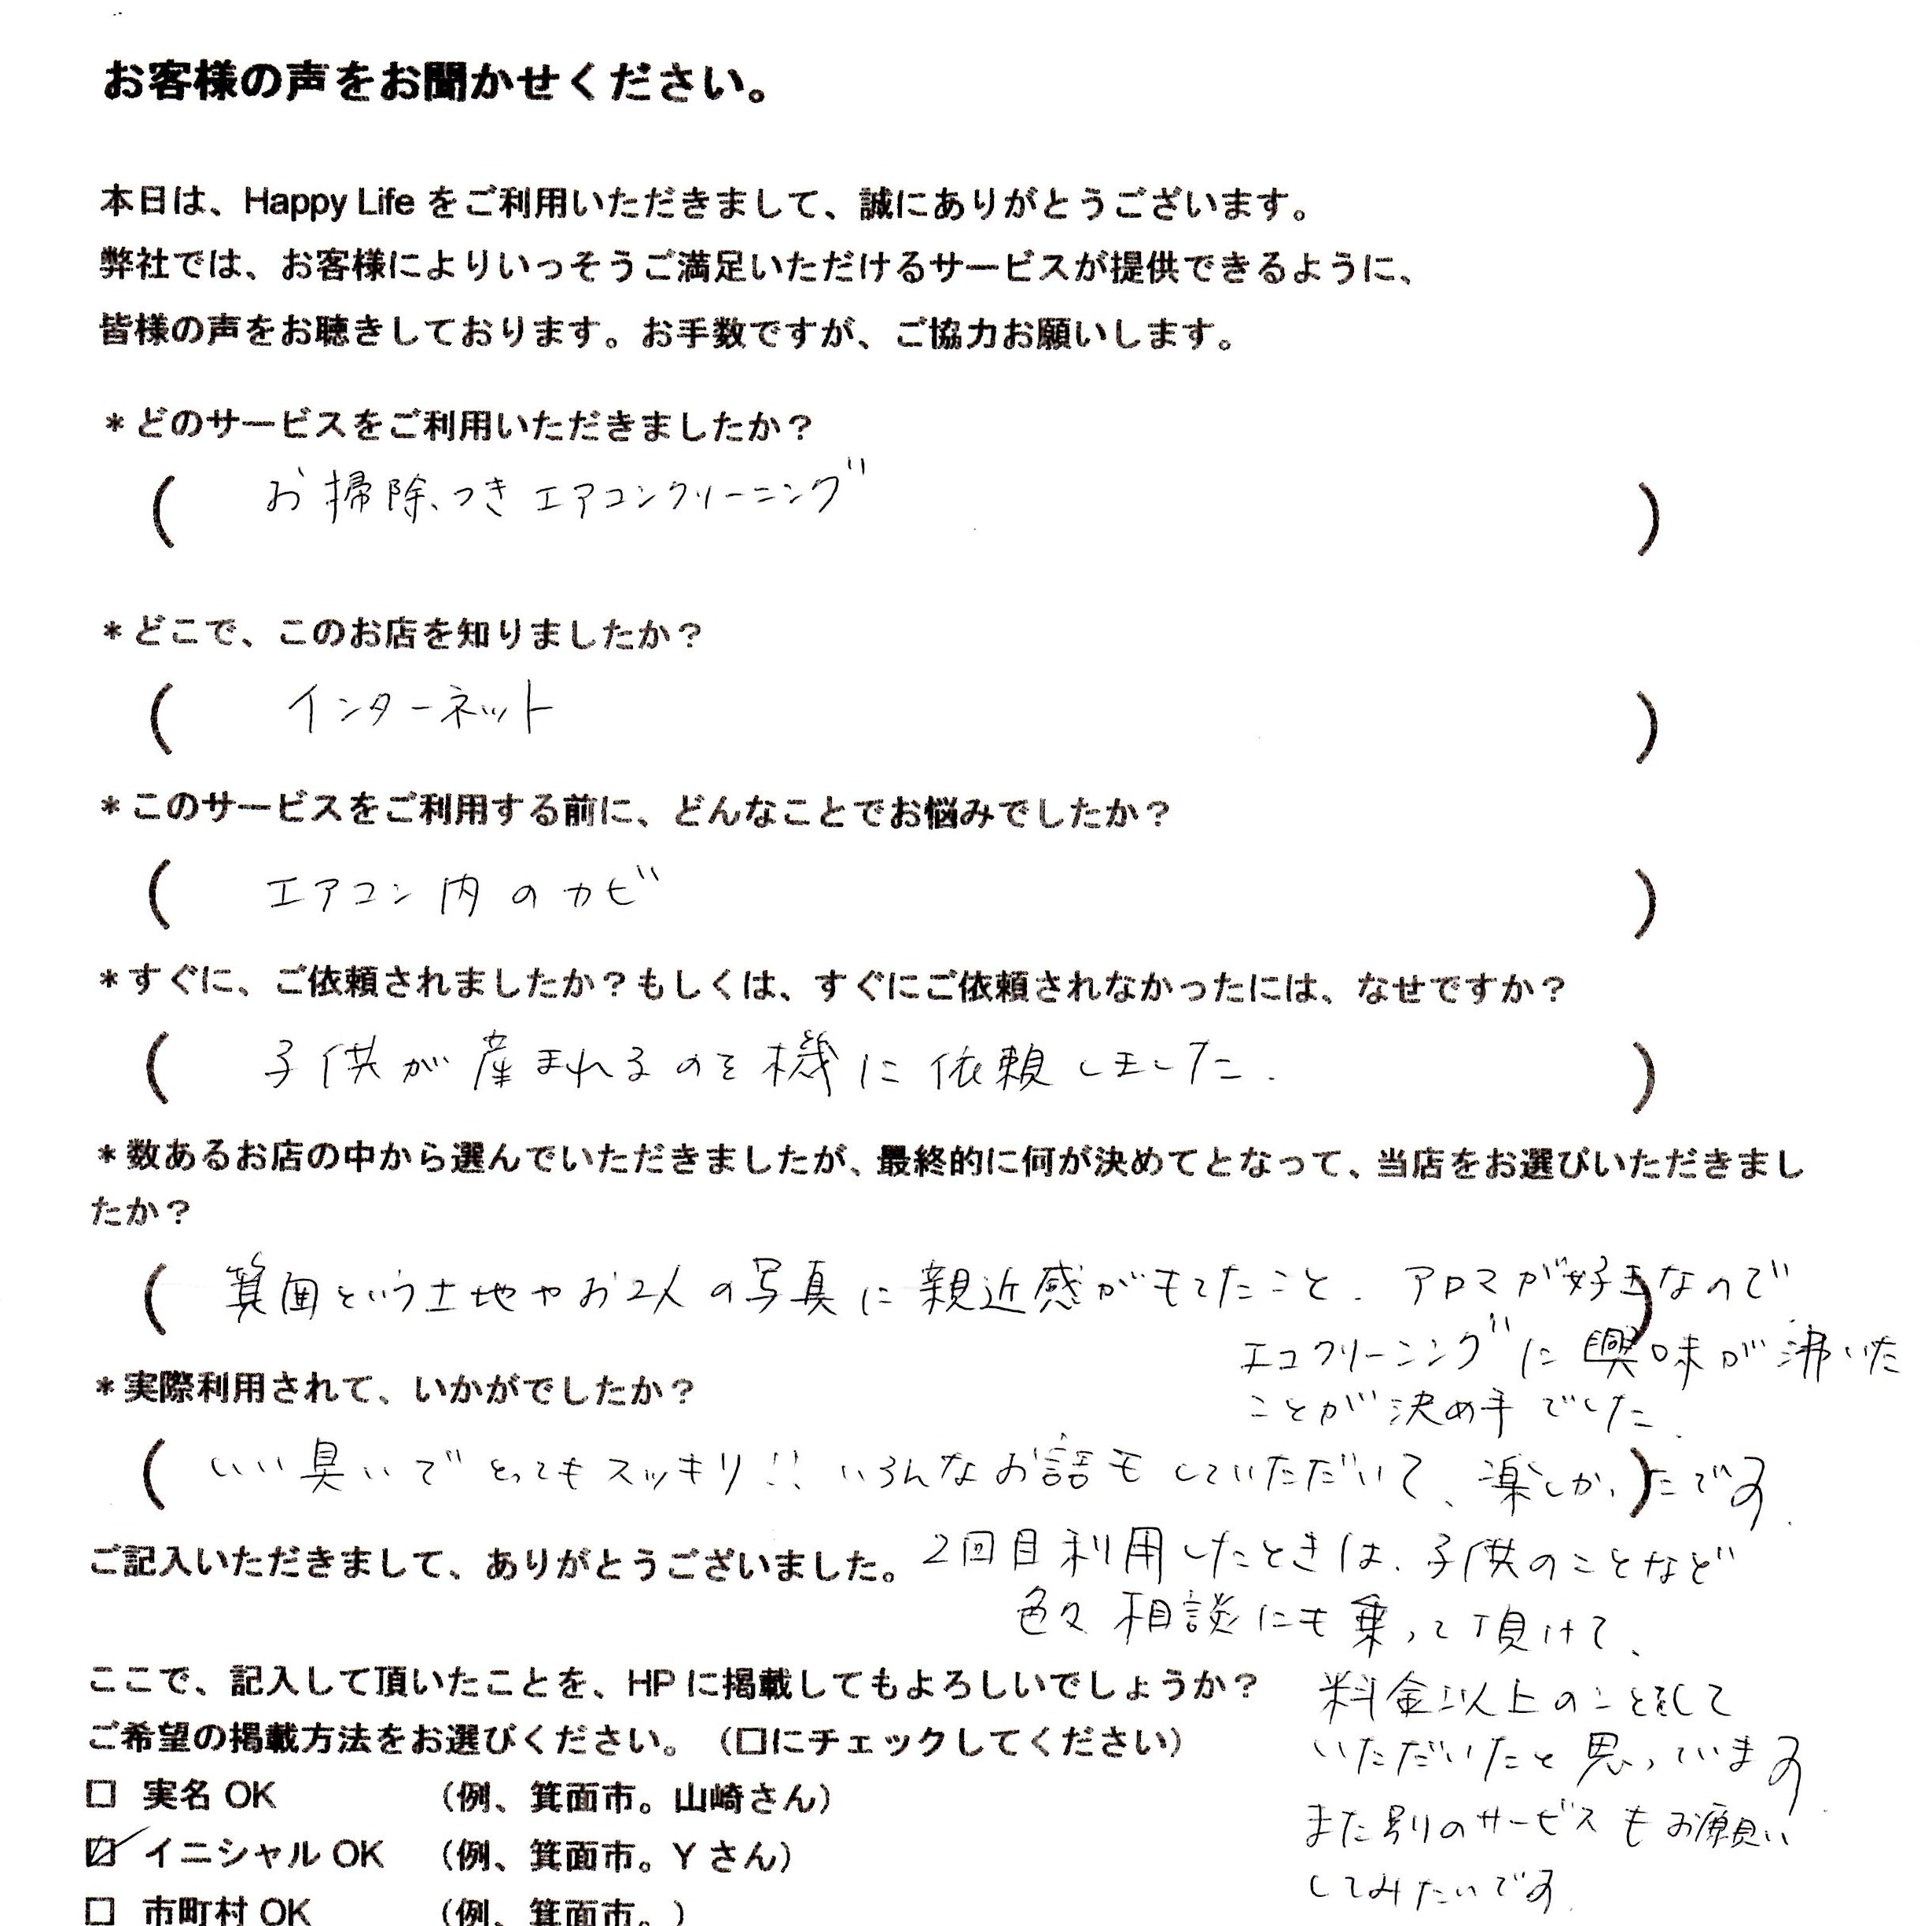 お客様の声をお聞かせください。
本日は、Happy Life をご利用いただきまして、誠にありがとうございます。
弊社では、お客様によりいっそうご満足いただけるサービスが提供できるように、
皆様の声をお聴きしております。お手数ですが、ご協力お願いします。
＊どのサービスをご利用いただきましたか？
( お掃除つきエアコンクリーニング )
＊どこで、このお店を知りましたか？
( インターネット )
＊このサービスをご利用する前に、どんなことでお悩みでしたか？
( エアコン内のカビ )
＊すぐに、ご依頼されましたか？もしくは、すぐにご依頼されなかったには、なせですか？
( 子供が産まれるのを機に依頼しました. )
＊数あるお店の中から選んでいただきましたが、最終的に何が決めてとなって、当店をお選びいただきまし
たか？
( 箕面という土地やお2人の写真に親近感がもてたこと. アロマが好きなので )
エコクリーニングに興味が沸いた
ことが決め手でした.
＊実際利用されて、いかがでしたか？
( いい臭いでとってもスッキリ!! いろんなお話もしていただいて、楽しかったです. )
ご記入いただきまして、ありがとうございました。
2回目利用したときは、子供のことなど
色々相談にも乗って頂けて、
料金以上のことをして
いただいたと思っています.
また別のサービスもお願い
してみたいです.
ここで、記入して頂いたことを、HP に掲載してもよろしいでしょうか？
ご希望の掲載方法をお選びください。（口にチェックしてください）
□ 実名 OK （例、箕面市。山崎さん）
☑ イニシャル OK （例、箕面市。Y さん）
□ 市町村 OK （例、箕面市。）